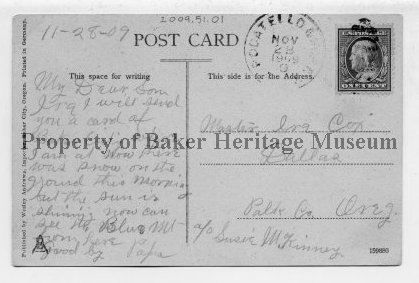 2009.51.01
11-28-09
POST CARD
POCATELLO
NOV
28
1909
This space for writing
This side is for the Address.
ONE CENT
My Dear Son
Ira I will send
you a card of
Property of Baker Heritage Museum
I am at now here
was snow on the
ground this morning
but the sun is
shining now can
see the Blue Mt
from here
good by Papa
Master Ira Cox
Dallas
Polk Co Oreg.
c/o Susie McKinney
Printed in Germany.
159893